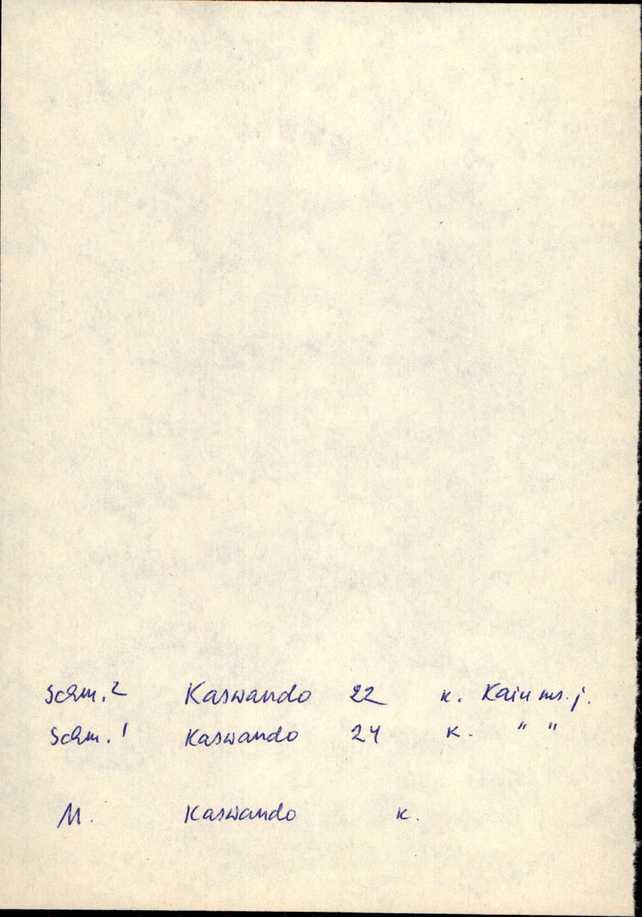 Schm. 2 Kaswando 22 k. Kain ms. j.
Schm. 1 Kaswando 24 k. " "
M. Kaswando k.